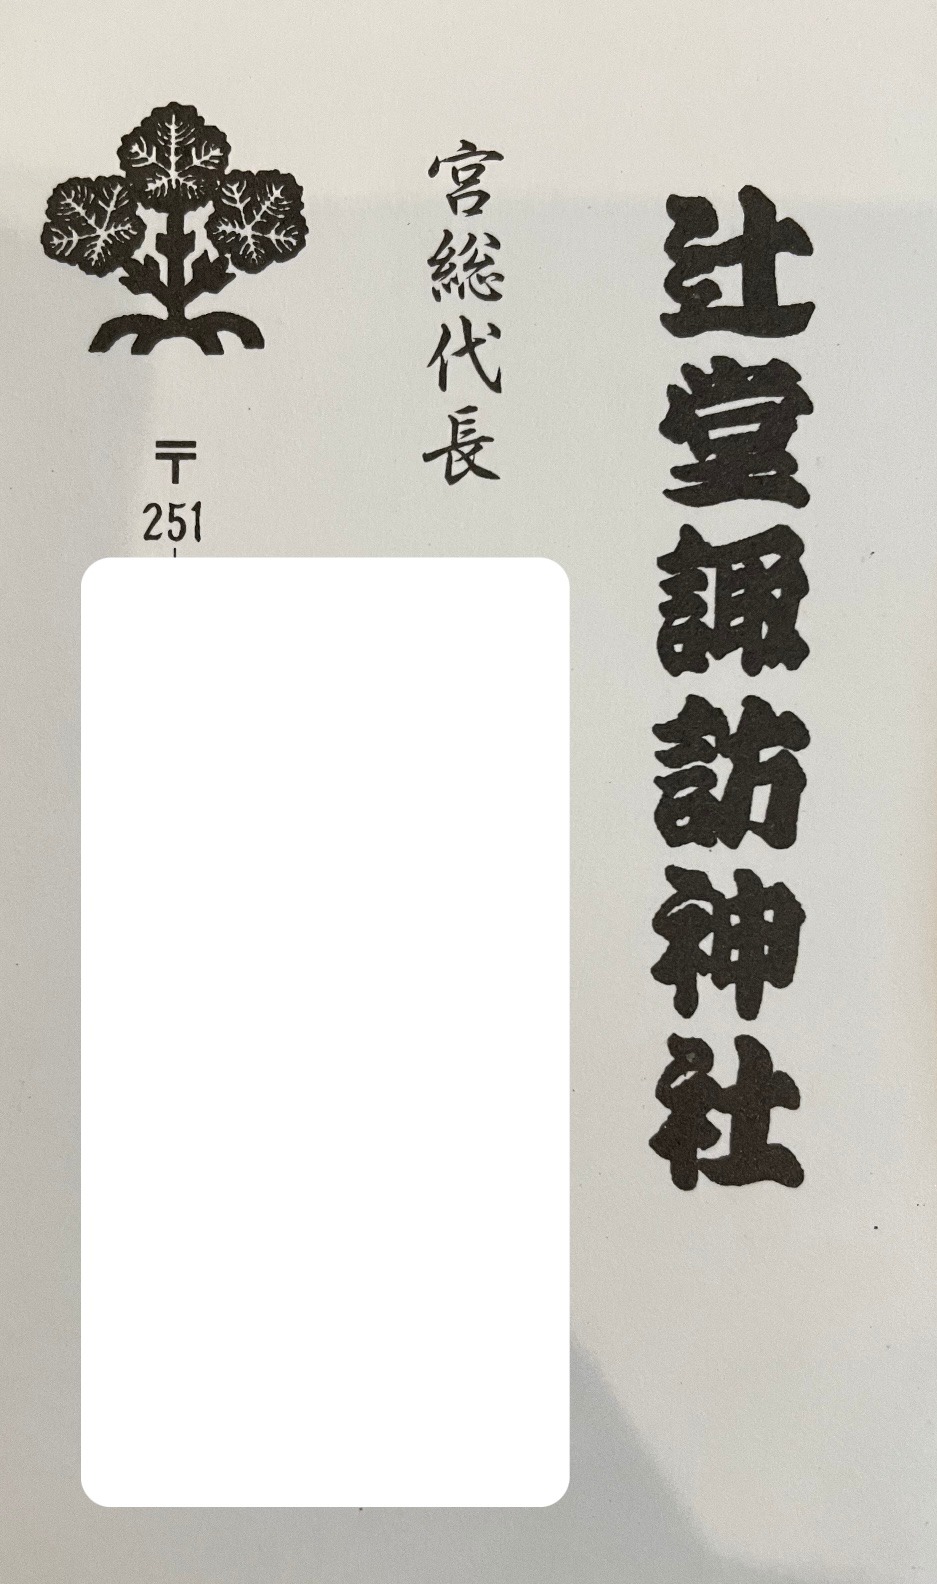 辻堂諏訪神社
宮総代長
〒
251